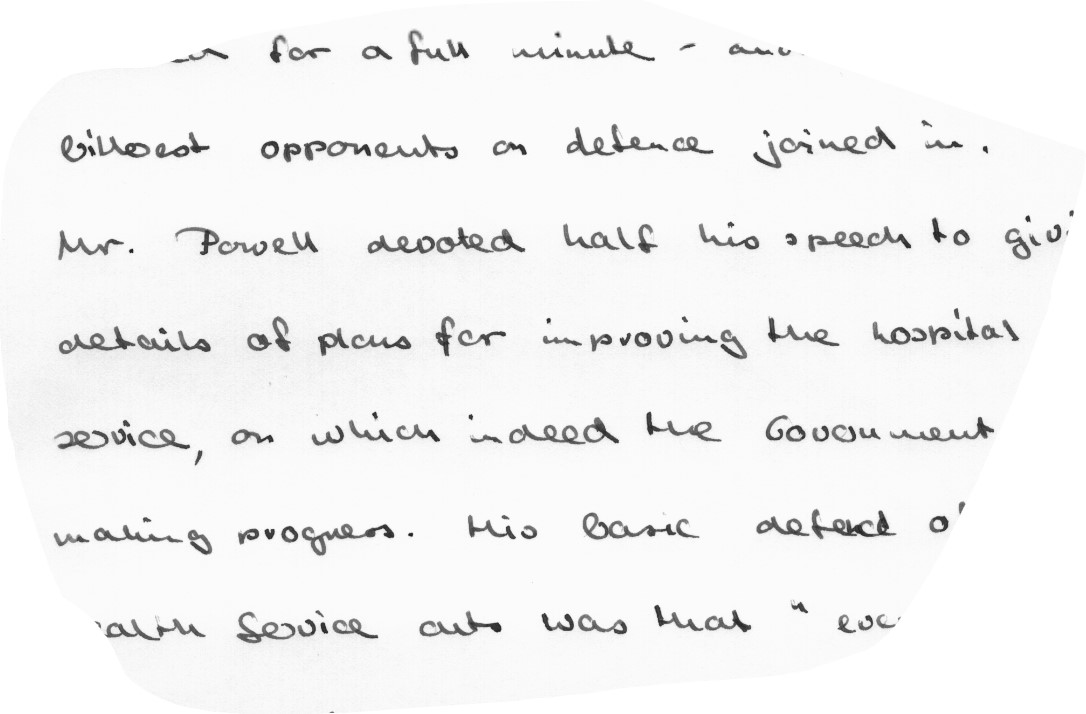 for a full minute - and
bitterest opponents on defence joined in.
Mr. Powell devoted half his speech to
details of plans for improving the hospital
service, on which indeed the Government
making progress. His basic
Service cuts was that "